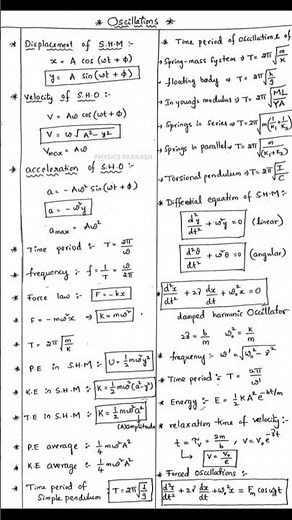 * Oscillations *
* Displacement of S.H.M :-
x = A cos (ωt + ϕ)
y = A sin (ωt + ϕ)
* Velocity of S.H.O :-
V = Aω cos (ωt + ϕ)
V = ω √(A² - y²)
Vmax = Aω
PHYSICS PRAKASH
* acceleration of S.H.O :-
a = - Aω² sin (ωt + ϕ)
a = - ω²y
amax = Aω²
* Time period :- T = 2π/ω
* frequency :- f = 1/T = ω/2π
* Force law :- F = -kx
* F = - mω²x ⇒ K = mω²
* T = 2π √(m/K)
* P.E in S.H.M :- U = 1/2 mω²y²
* K.E in S.H.M :- K = 1/2 mω²(a²-y²)
* T.E in S.H.M :- K = 1/2 mω²a²
(Amplitude)
* P.E average :- 1/4 mω²A²
* K.E average :- 1/4 mω²A²
* Time period of
Simple pendulum :- T = 2π √(l/g)
* Time period of Oscillations of
* Spring-mass System → T = 2π √(m/K)
* floating body → T = 2π √(h/g)
* In young's modulus → T = 2π √(ML/YA)
* Springs in series → T = 2π √(m(1/K₁ + 1/K₂))
* Springs in parallel → T = 2π √(m/(K₁+K₂))
* Torsional pendulum → T = 2π √(I/C)
* Differntial equation of S.H.M :-
d²y/dt² + ω²y = 0 (linear)
d²θ/dt² + ω²θ = 0 (angular)
d²x/dt² + 2γ dx/dt + ω₀²x = 0
damped harmonic Oscillator
2γ = b/m ω₀² = k/m
* frequency :- ω' = √(ω₀² - γ²)
* Time period :- T = 2π/ω'
* Energy :- E = 1/2 KA² e^(-bt/m)
* relaxation time of velocity :-
t = τv = 2m/b , V = V₀ e^(-γt)
↳ V = V₀/e
* Forced oscillations :-
d²x/dt² + 2γ dx/dt + ω₀²x = Fm cosωdt